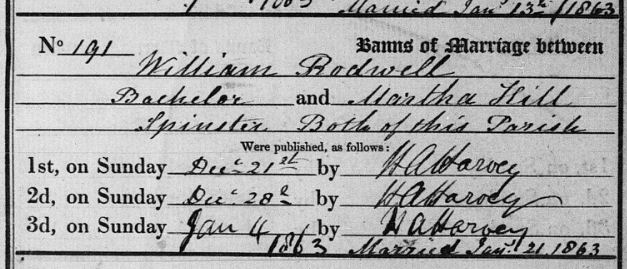 Married Jan^y 13th 1863
No 191 Banns of Marriage between
William Rodwell
Bachelor and Martha Hill
Spinster Both of this Parish
Were published, as follows:
1st, on Sunday Dec^r 21st by HAHarvey
2d, on Sunday Dec^r 28th by HAHarvey
3d, on Sunday Jan 4 1863 by HAHarvey
Married Jan^y 21 1863